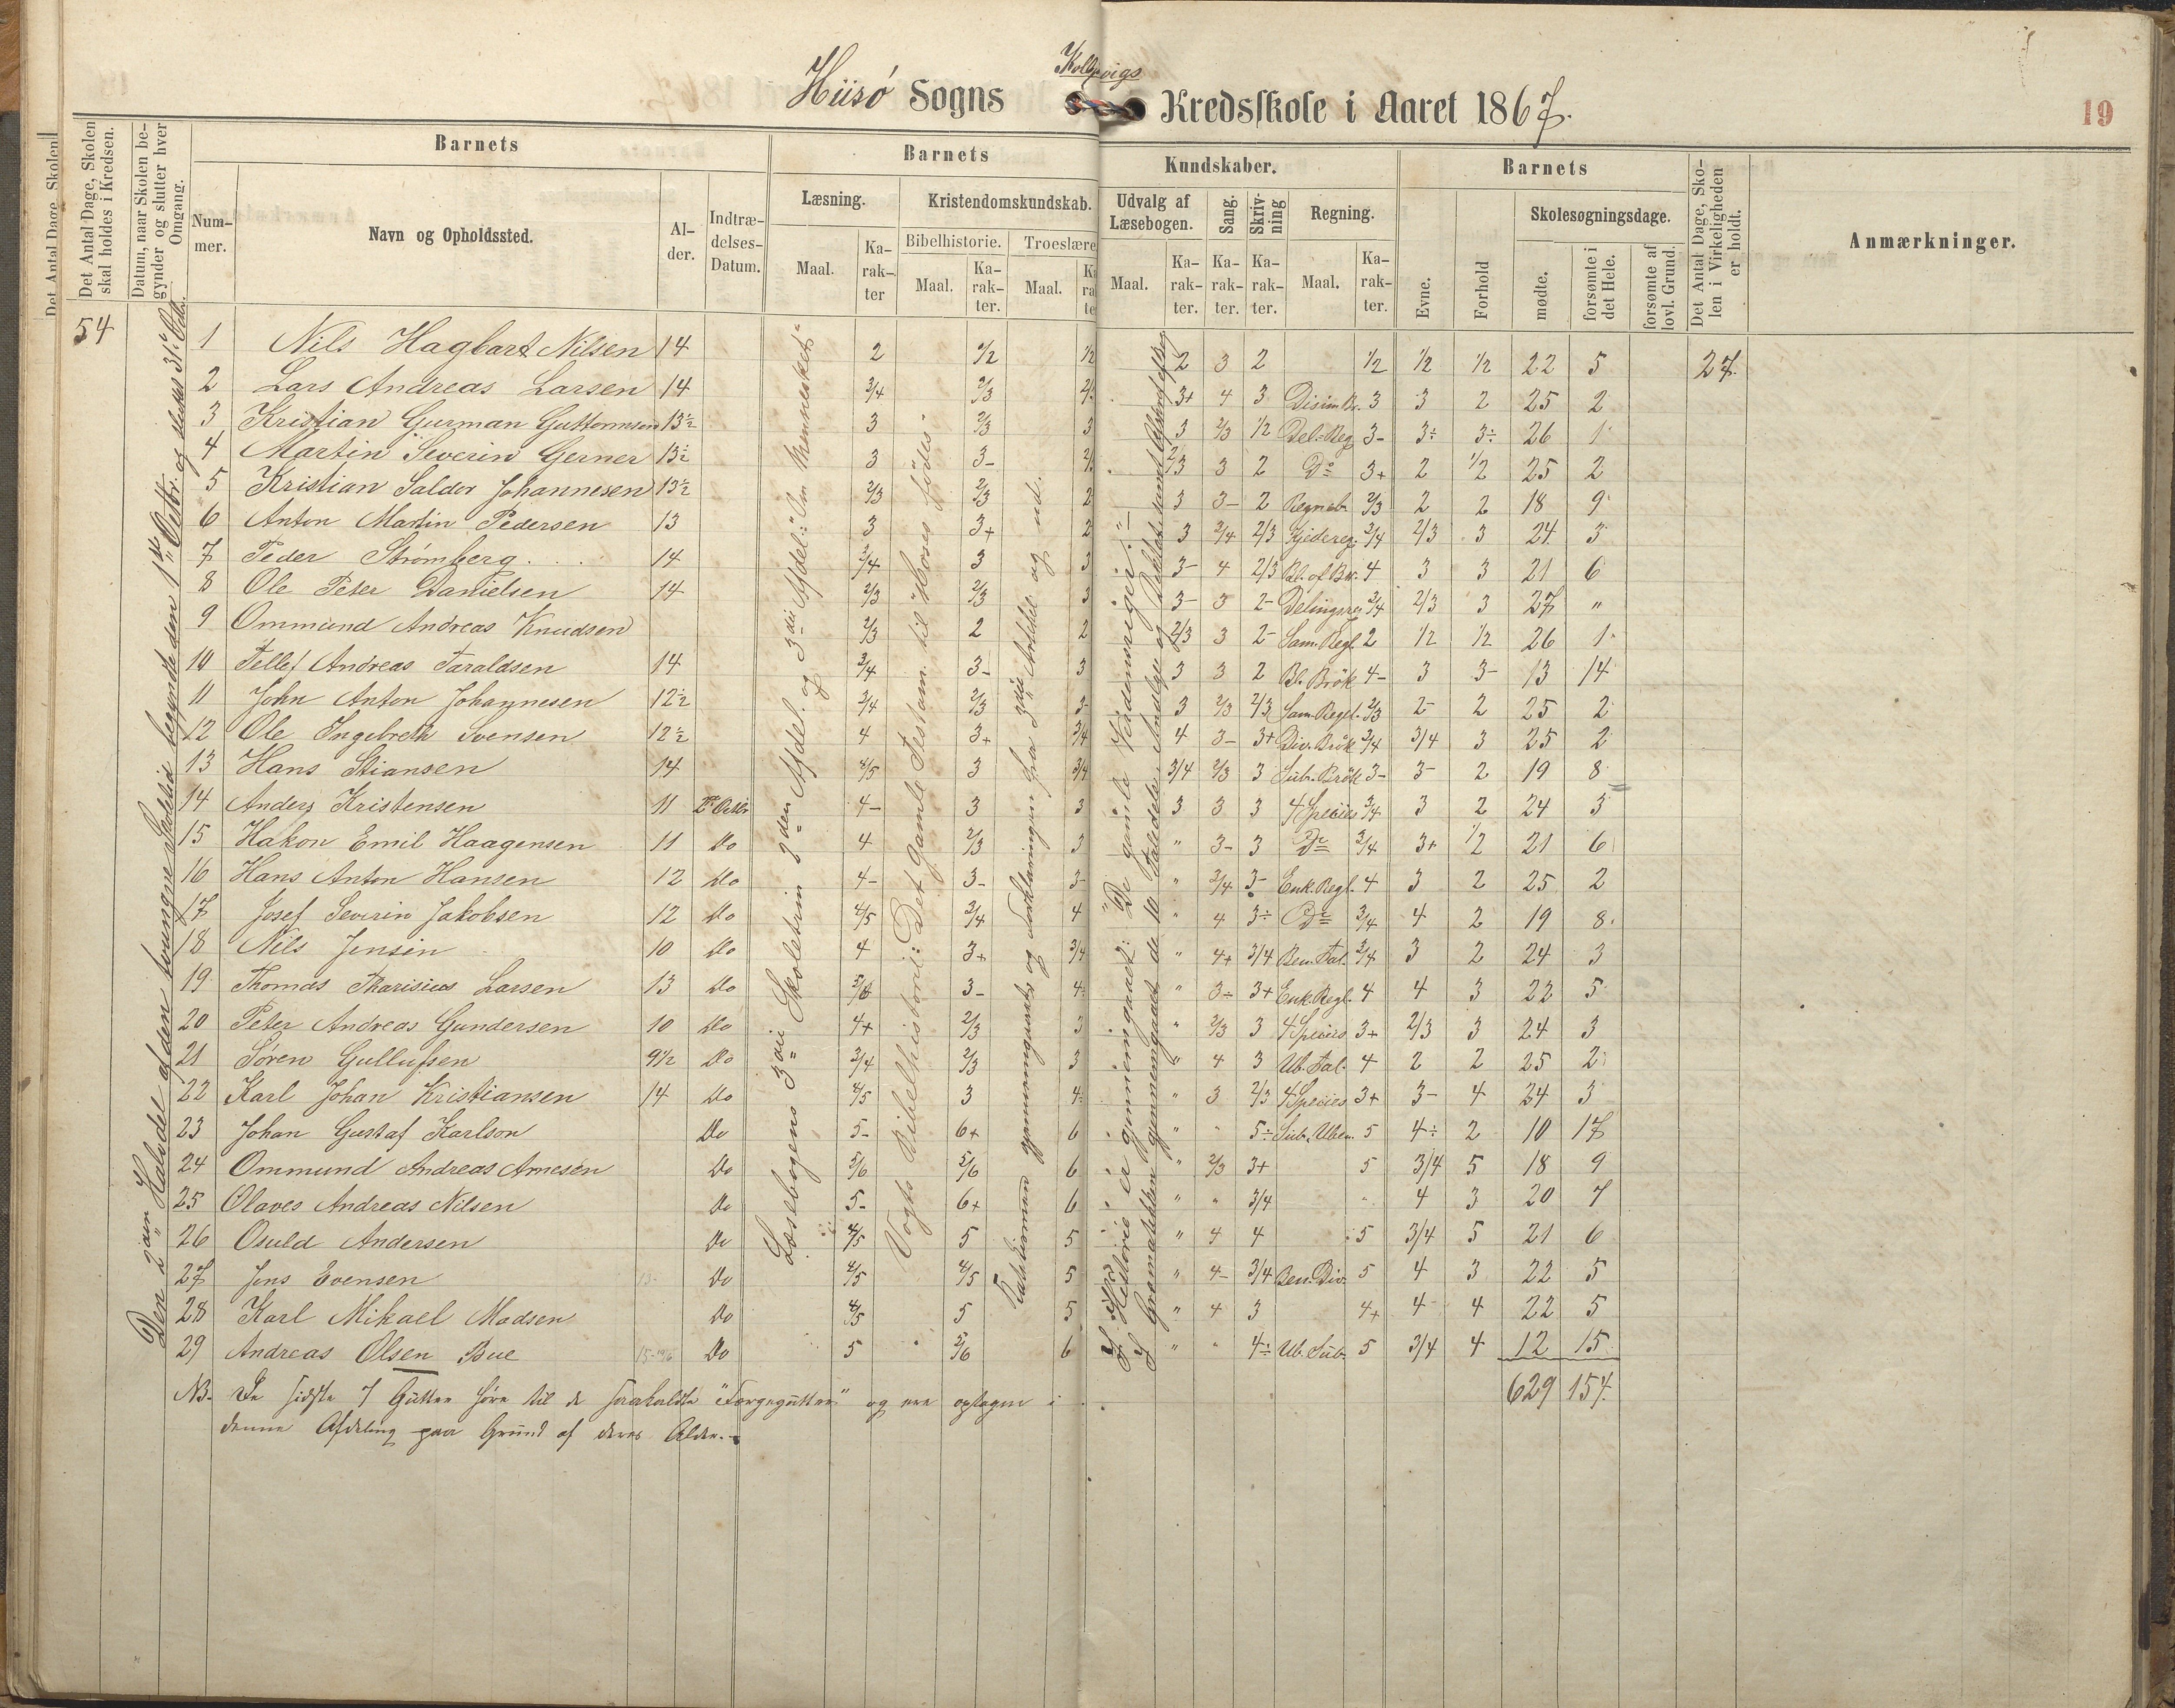 Kolbjvigs
Hiisö Sogns Kredsskole i Aaret 1867.
19
Det Antal Dage, Skolen
Det Antal Dage, Skolen skal holdes i Kredsen.
Datum, naar Skolen begynder og slutter hver Omgang.
Barnets
Barnets
Kundskaber.
Barnets
Det Antal Dage, Skolen i Virkeligheden er holdt.
Anmærkninger.
Nummer.
Navn og Opholdssted.
Alder.
Indtrædelses-Datum.
Læsning.
Kristendomskundskab.
Udvalg af Læsebogen.
Sang.
Skrivning
Regning.
Evne.
Forhold
Skolesøgningsdage.
Bibelhistorie.
Troeslære
Maal.
Karakter
Maal.
Karakter.
Maal.
Maal.
Karakter.
Karakter.
Karakter.
Maal.
Karakter.
mødte.
forsømte i det Hele.
forsømte af lovl. Grund.
54
Den 2den Halvdel af den tvungne Skoletid begyndte den 1ste Octbr. og sluttes 31te Octr.
Læsebogens 3die Skoletrin 2den Afdel. og 3die Afdel: "Om Mennesket"
Vogts Bibelhistorie: Det gamle Testam. til "Moses födes"
Katekismen gjennemgaaet og Forklaringen fra 3die Artikel og ud.
I Historie er gjennemgaaet: "De gamle Nordens Konger".
1 Nils Hagbart Nilsen 14 2 1/2 1/2 2 3 2 1/2 1/2 1/2 22 5 27.
2 Lars Andreas Larsen 14 3/4 2/3 3+ 4 3 Disim Br. 3 3 2 25 2
3 Kristian Gurman Guttormsen 13½ 3 2/3 3 3 2/3 1/2 Del-Reg 3- 3÷ 3÷ 26 1
4 Martin Severin Gerner 13½ 3 3- 2/3 3 2 Do 3+ 2 1/2 25 2
5 Kristian Saldor Johannesen 13½ 2/3 2/3 2 3 3- 2 Regneb. 2/3 2 2 18 9
6 Anton Martin Pedersen 13 3 3+ 2 3 3/4 2/3 Kjedereg. 3/4 2/3 3 24 3
7 Peder Strömberg 14 3/4 3 3 3- 4 2/3 Bl. of Br. 4 3 3 21 6
8 Ole Peter Danielsen 14 2/3 2/3 3 3- 3 2- Delingsreg 3/4 2/3 3 27 "
9 Ommund Andreas Knudsen 2/3 2 2 2/3 3 2- Sam. Regl. 2 1/2 1/2 26 1
10 Tellef Andreas Taraldsen 14 3/4 3- 3 3 3 2 Bl. Brök 4- 3 3- 13 14
11 John Anton Johannesen 12½ 3/4 2/3 3- 3 2/3 2/3 Sam. Regel. 2/3 2- 2 25 2
12 Ole Ingebreth Svensen 12½ 4 3+ 3/4 4 3- 3+ Div. Brök 3/4 3/4 3 25 2
13 Hans Stiansen 14 4/5 3 3/4 3/4 2/3 3 Sub. Brök 3- 3- 2 19 8
14 Anders Kristensen 11 2de Octbr 4- 3 3 3 3 3 4 Species 3/4 3 2 24 3
15 Hakon Emil Haagensen 11 Do 4 2/3 3 " 3- 3 Do 3/4 3+ 1/2 21 6
16 Hans Anton Hansen 12 Do 4- 3- 3- " 3/4 3- Enk. Regl. 4 3 2 25 2
17 Josef Severin Jakobsen 12 Do 4/5 3/4 4 " 4 3÷ Do 3/4 4 2 19 8
18 Nils Jensen 10 Do 4 3+ 3/4 " 4+ 3/4 Ben. Tal. 3/4 3 2 24 3
19 Thomas Tharisius Larsen 13 Do 5/6 3- 4 " 3÷ 3+ Enk. Regl. 4 4 3 22 5
20 Peter Andreas Gundersen 10 Do 4+ 2/3 3 " 2/3 3 4 Species 3+ 2/3 3 24 3
21 Sören Gullufsen 9½ Do 3/4 2/3 3 " 4 3 Ub. Tal. 4 2 2 25 2
22 Karl Johan Kristiansen 14 Do 4/5 3 4 " 3 2/3 4 Species 3+ 3- 4 24 3
23 Johan Gustaf Karlson Do 5- 6+ 6 " " 5÷ Sub. Uben. 5 4÷ 2 10 17
24 Ommund Andreas Arnesen Do 5/6 5/6 6 " 2/3 3+ 5 3/4 5 18 9
25 Olaves Andreas Nilsen Do 5- 6+ 6 " " 3/4 " 4 3 20 7
26 Osuld Andersen Do 4/5 5 5 " 4 4 5 3/4 5 21 6
27 Jens Evensen Do 4/5 4/5 5 " 4- 3/4 Ben. Div. 5 4 3 22 5
28 Karl Mikael Madsen Do 4/5 5 5 " 4 3 4+ 4 4 22 5
29 Andreas Olsen Bue Do 5 5/6 6 " " 4÷ Ub. Sub. 5 3/4 4 12 15
629 154
NB. De sidste 7 Gutter høre til de saakaldte "Færgegutter" og ere optagne i
denne Afdeling paa Grund af deres Alder.